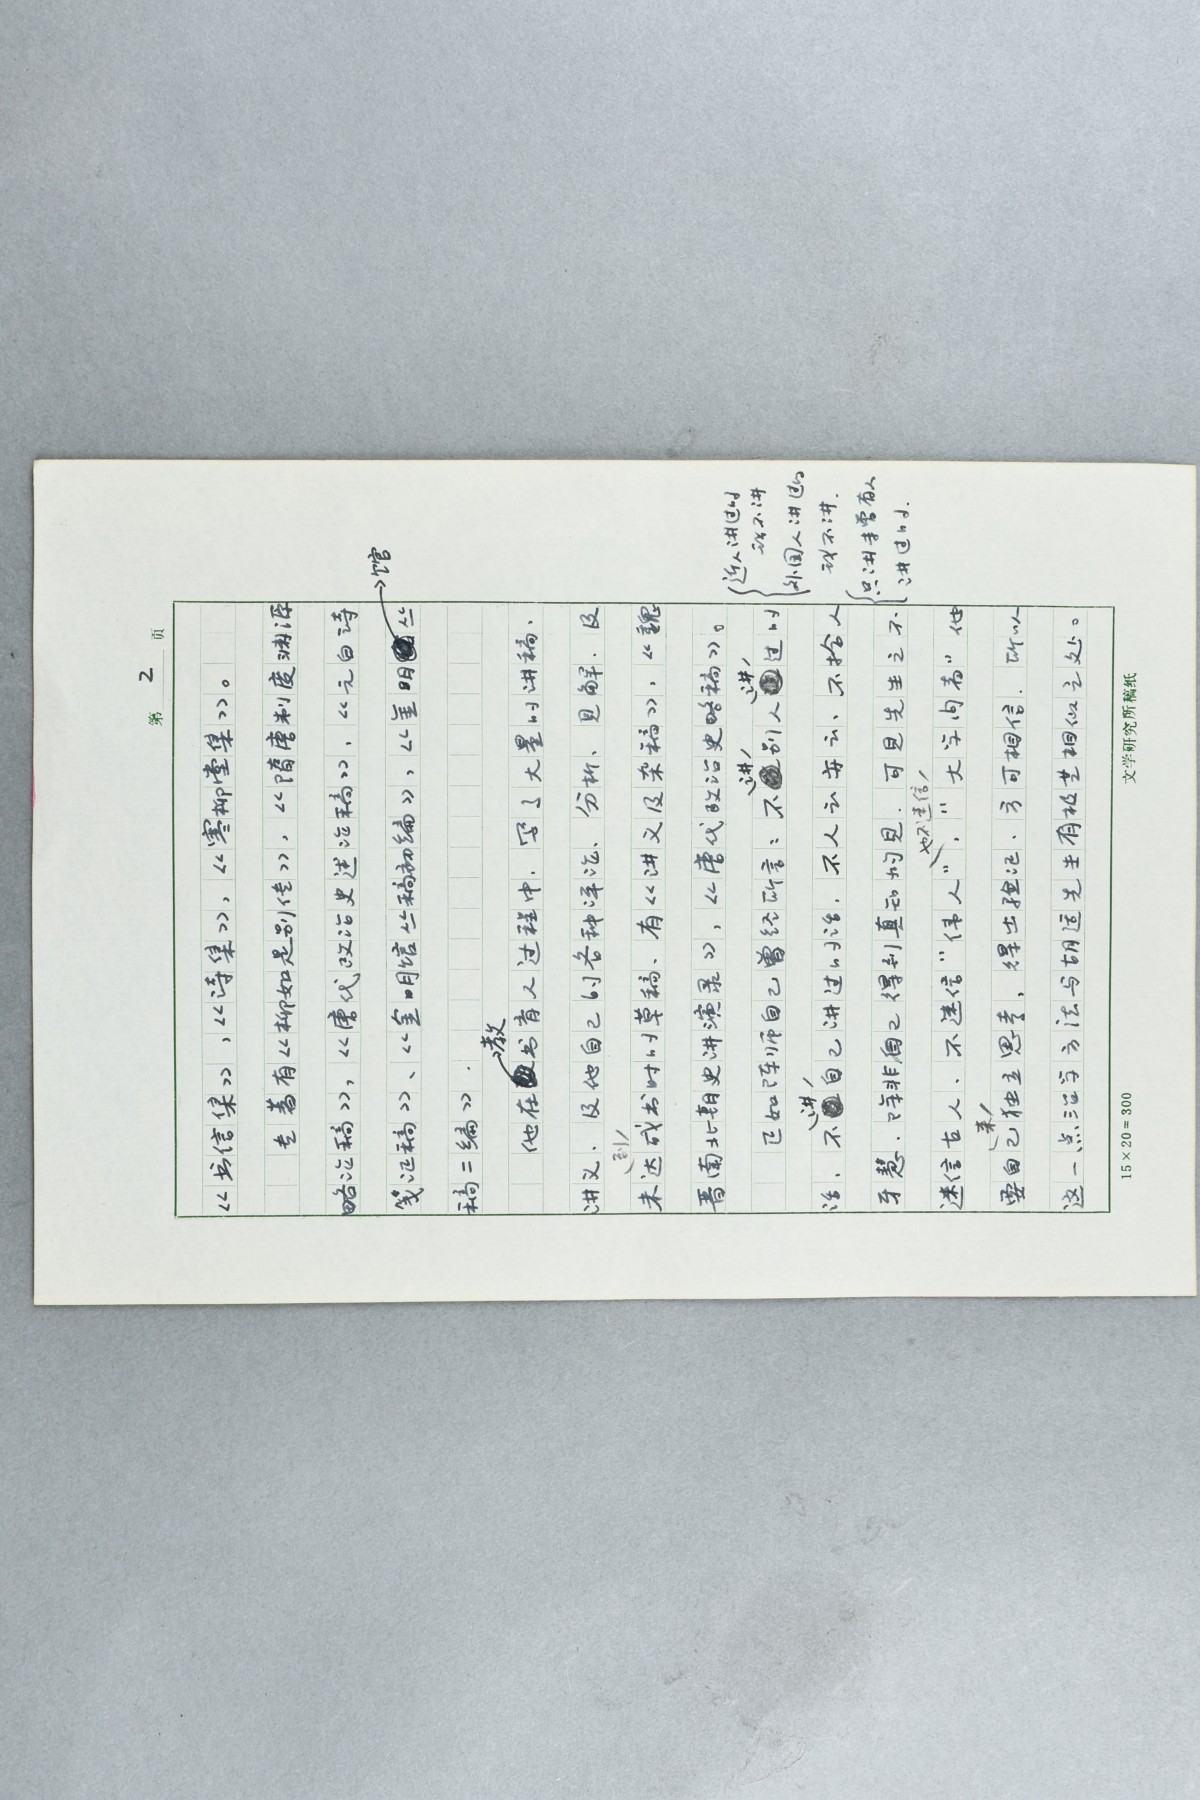 第 2 页
《书信集》，《诗集》，《寒柳堂集》。
专著有《柳如是别传》，《隋唐制度渊源
略论稿》，《唐代政治史述论稿》，《元白诗
笺证稿》、《金明馆丛稿初编》，《金明馆丛
稿二编》.
他在教书育人过程中，写了大量的讲稿、
讲义，及他自己的各种评论、分析、见解，及
未达到成书时的草稿、有《讲义及杂稿》，《魏
晋南北朝史讲演录》，《唐代政治史略稿》。
正如陈师自己曾经所言：不讲别人讲过的
话，不讲自己讲过的话，不人云亦云、不拾人
牙慧.除非自己得到真知灼见.可见先生之不
迷信古人、不迷信"伟人"，也不迷信"大学问者"他
要自己来独立思考，得出验证.方可相信.所以
这一点治学方法与胡适先生有极其相似之处。
近人讲过的
我不讲
外国人讲过的
我不讲.
只讲未曾有人
讲过的.
15×20=300
文学研究所稿纸